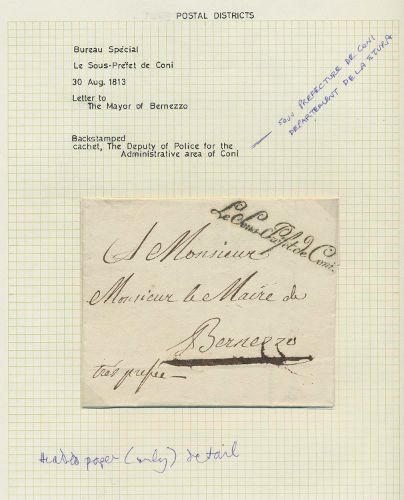 POSTAL DISTRICTS
Bureau Spécial
Le Sous-Préfet de Coni
30 Aug. 1813
Letter to
The Mayor of Bernezzo
Backstamped
cachet, The Deputy of Police for the
Administrative area of Coni
SOUS PREFECTURE DE CONI
DEPARTEMENT DE LA STURA
Le Sous Préfet de Coni.
A Monsieur
Monsieur le Maire de
Bernezzo
très pressée
paper (only) detail